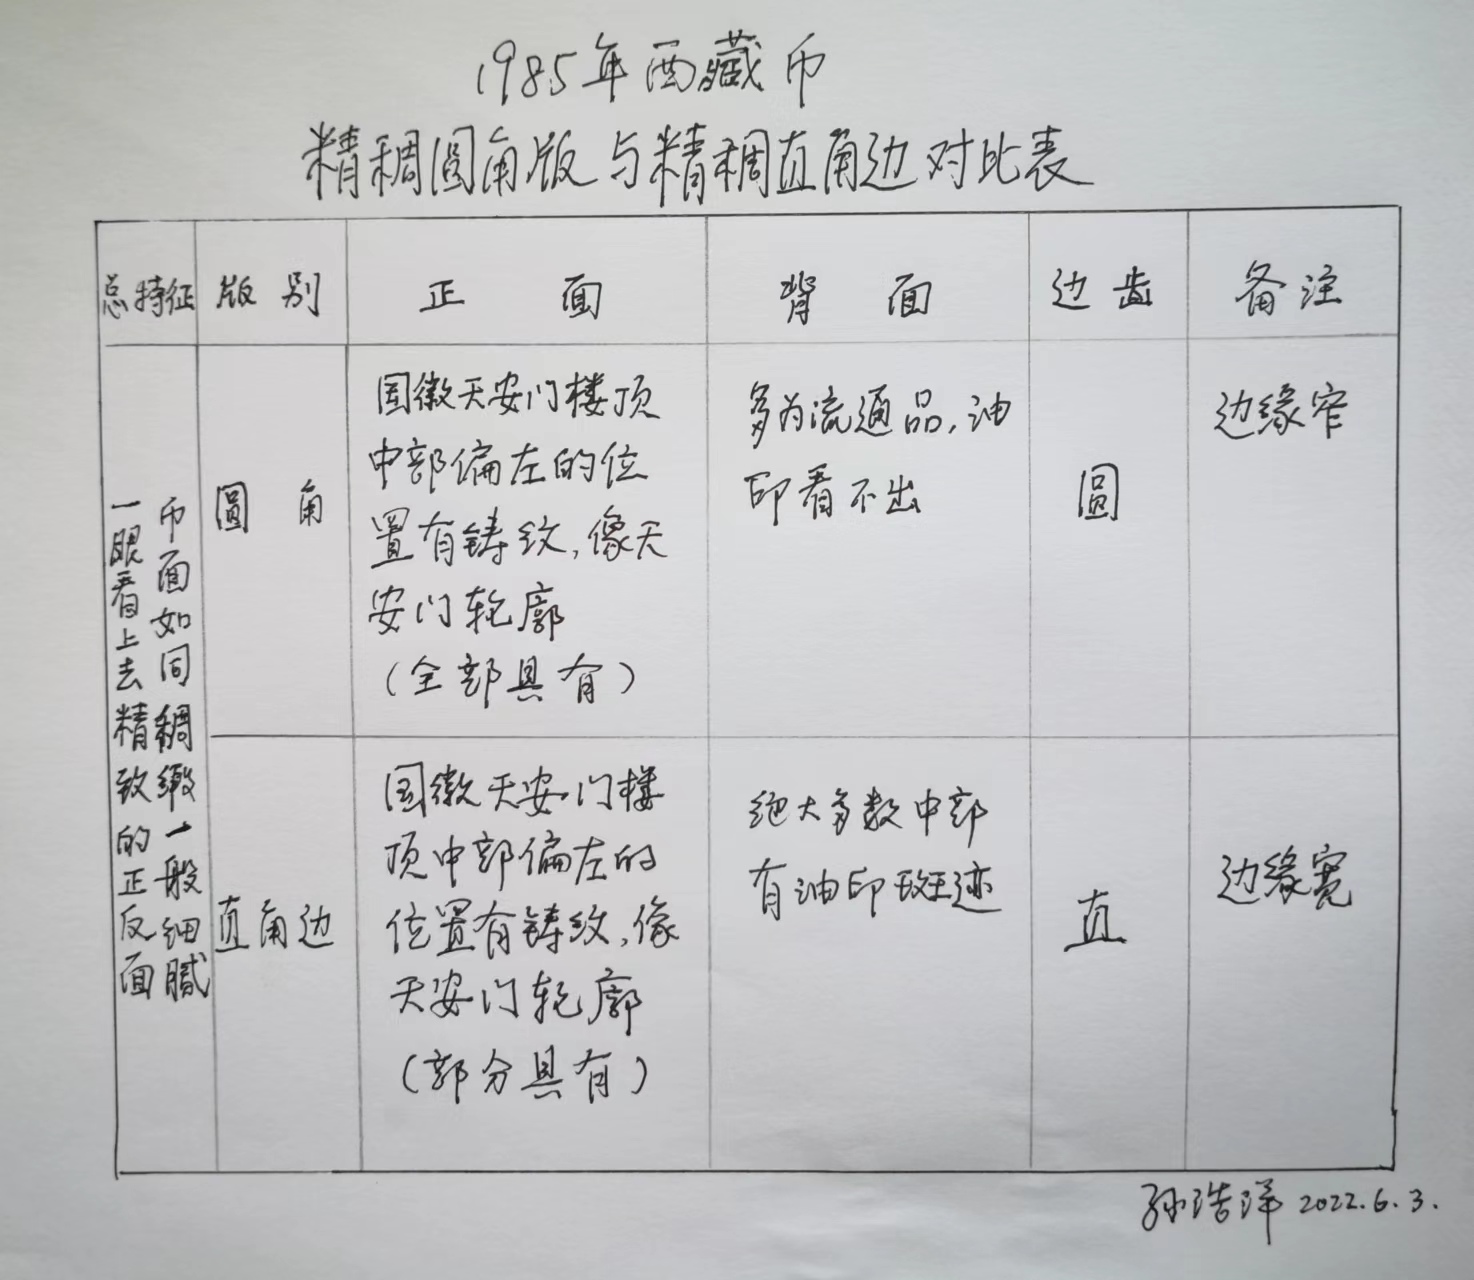 1985年西藏币
精稠圆角版与精稠直角边对比表
总特征 版别 正面 背面 边齿 备注
币面如同稠缴一般细腻
一眼看上去精致的正反面
圆角
国徽天安门楼顶
中部偏左的位
置有铸纹,像天
安门轮廓
(全部具有)
多为流通品,油
印看不出
圆
边缘窄
直角边
国徽天安门楼
顶中部偏左的
位置有铸纹,像
天安门轮廓
(部分具有)
绝大多数中部
有油印斑迹
直
边缘宽
孙浩洋 2022.6.3.